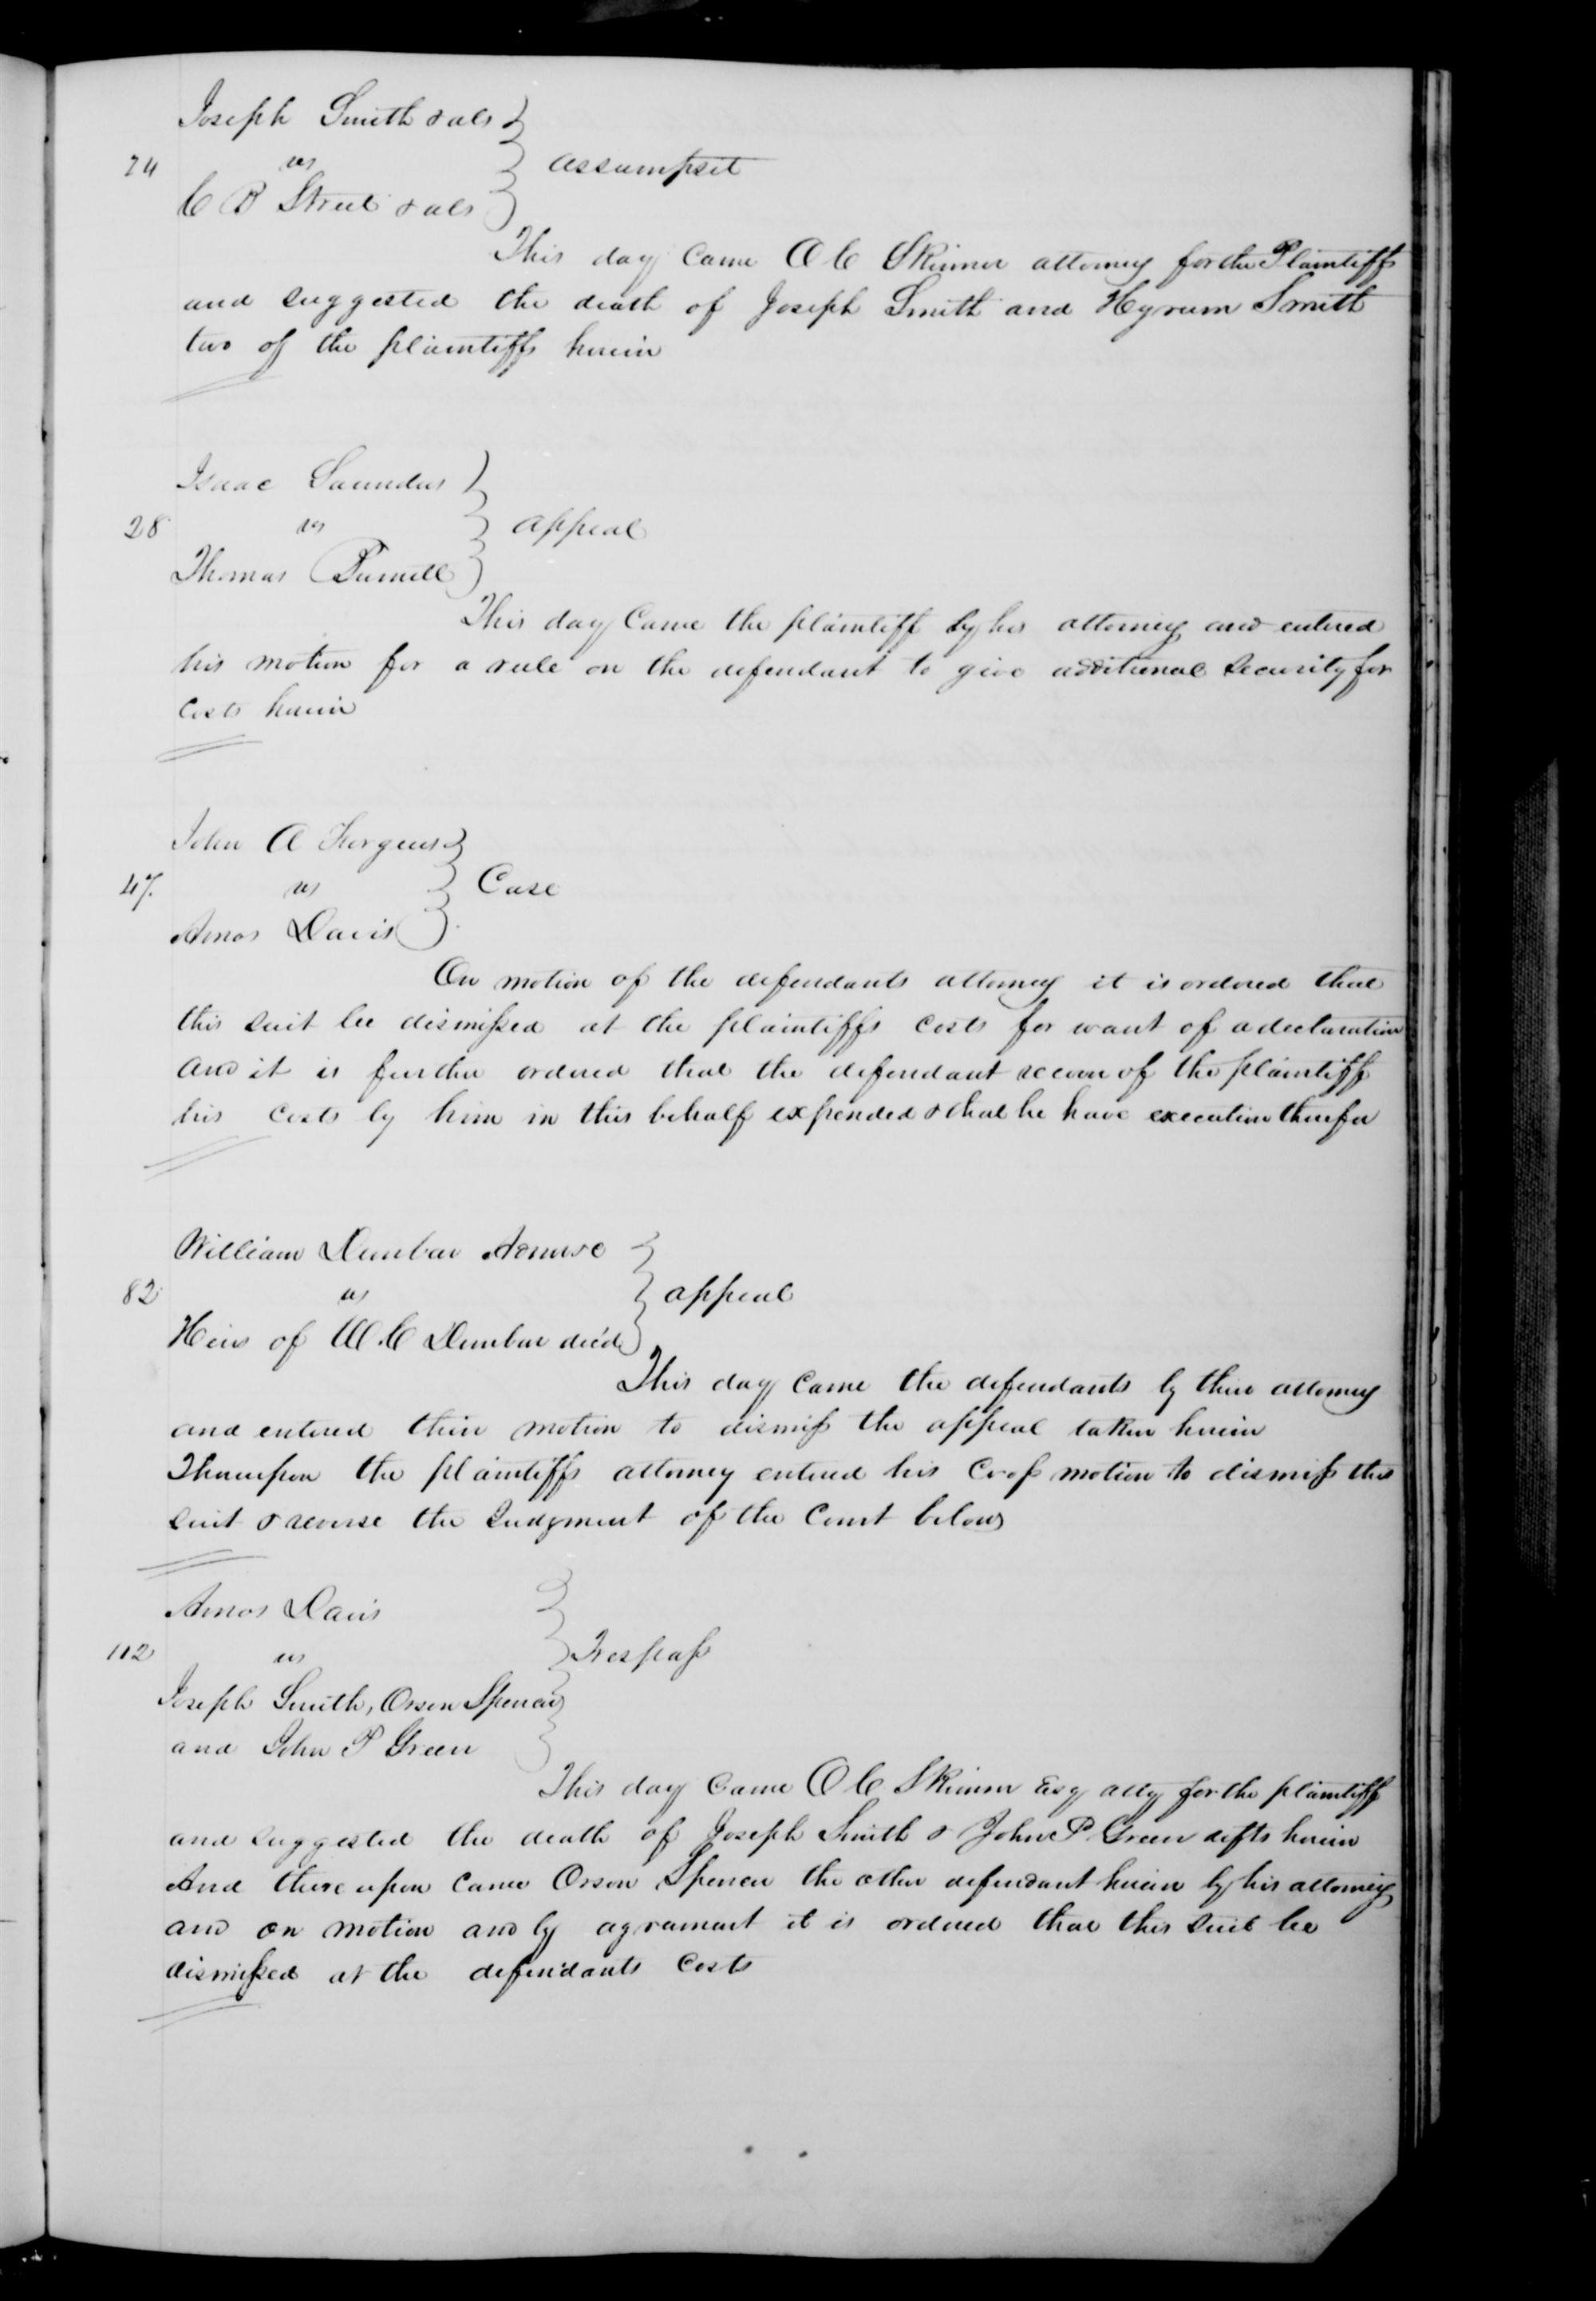 Joseph Smith & als
24 vs assumpsit
C B Street & als
This day came O C Skinner attorney for the Plaintiffs
and suggested the death of Joseph Smith and Hyrum Smith
two of the plaintiffs herein
Isaac Saunders
28 vs appeal
Thomas
This day came the plaintiff by his attorney and entered
his motion for a rule on the defendant to give additional security for
costs herein
John A Forgeus
47 vs Case
Amos Davis
On motion of the defendants attorney it is ordered that
this suit be dismissed at the plaintiffs costs for want of a declaration
and it is further ordered that the defendant recover of the plaintiff
his costs by him in this behalf expended & that he have execution therefor
William Dunbar Admr
82 vs appeal
Heirs of W. C Dunbar decd
This day came the defendants by their attorney
and entered their motion to dismiss the appeal taken herein
Thereupon the plaintiffs attorney entered his cross motion to dismiss this
suit & reverse the Judgment of the Court below
Amos Davis
112 vs Trespass
Joseph Smith, Orson Spencer
and John P Green
This day came O C Skinner Esq atty for the plaintiff
and suggested the death of Joseph Smith & John P Green defts herein
And there upon came Orson Spencer the other defendant herein by his attorney
and on motion and by agreement it is ordered that this suit be
dismissed at the defendants costs